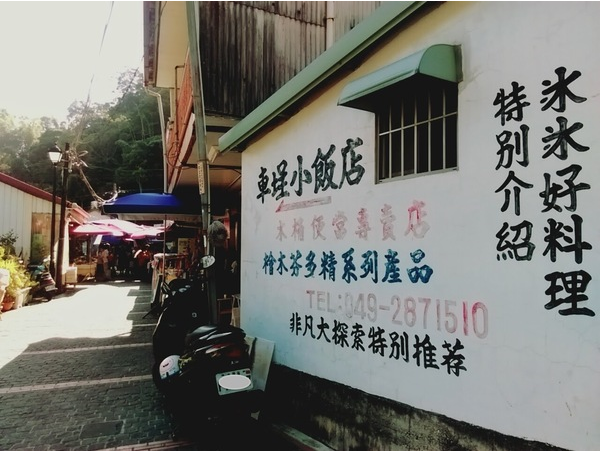 冰冰好料理
特別介紹
車埕小飯店
木桶便當專賣店
檜木芬多精系列產品
TEL:049-2871510
非凡大探索特別推荐